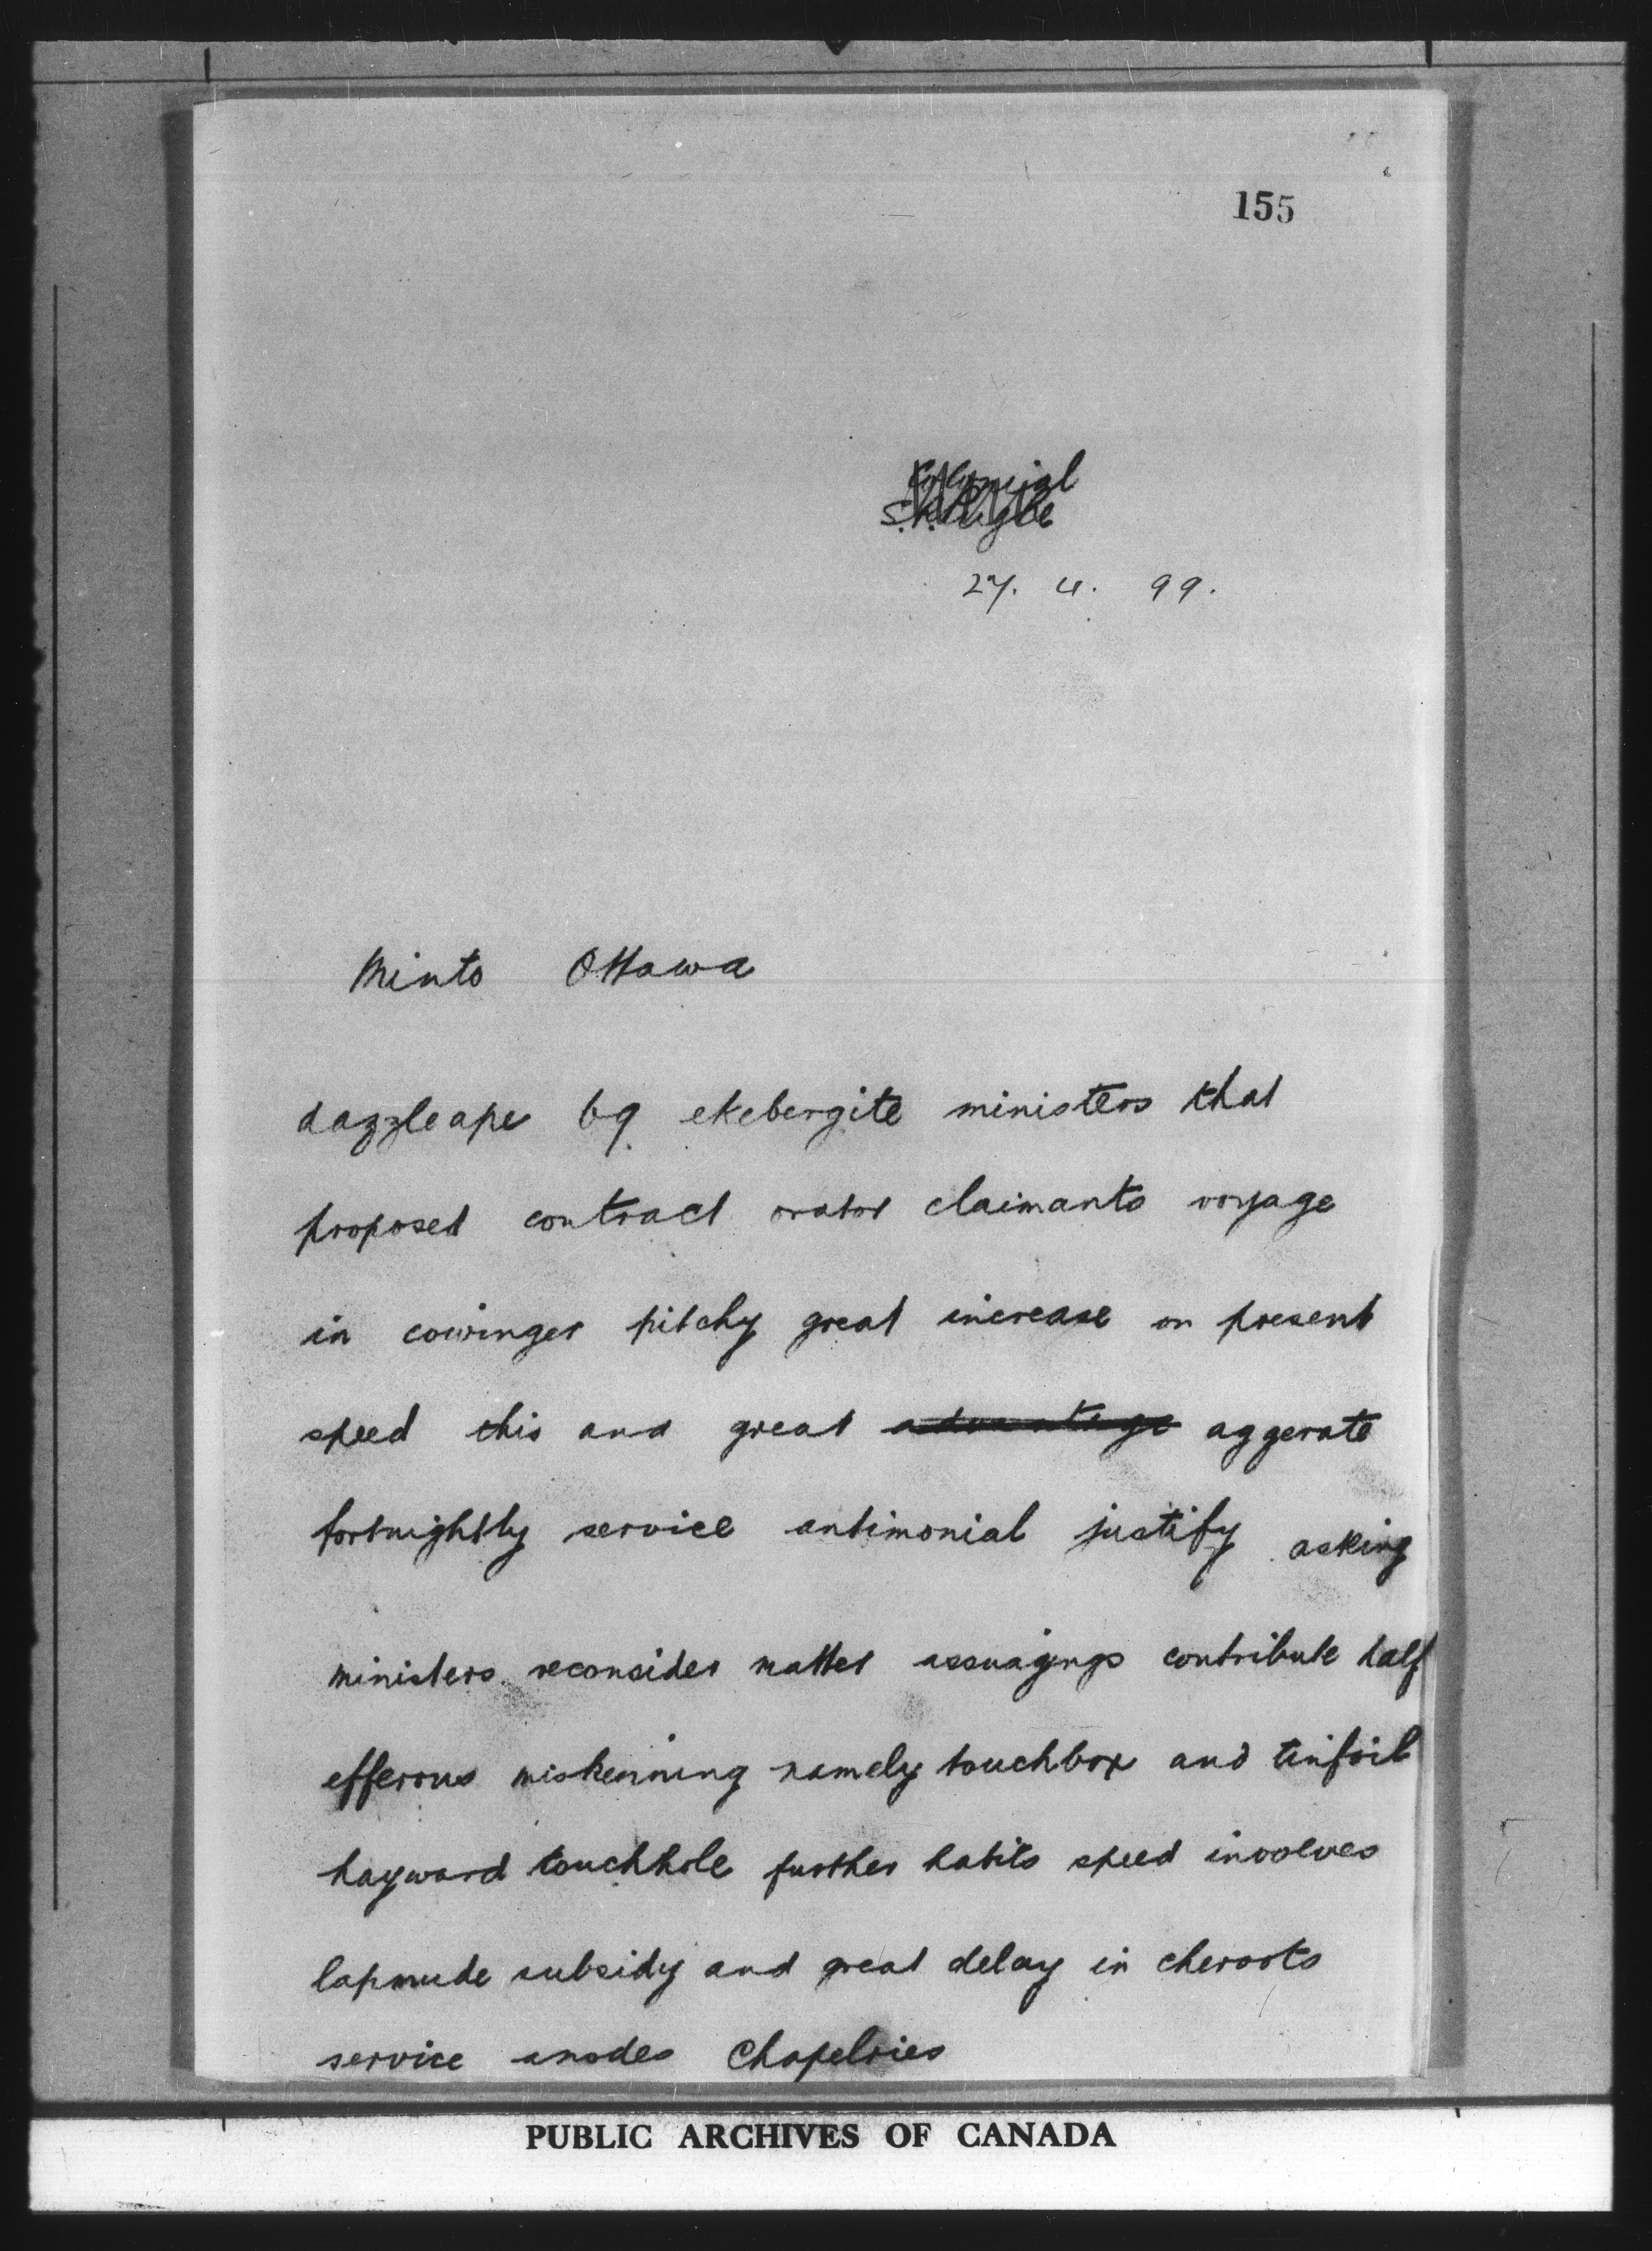 155
27. 4. 99.
Minto Ottawa
dazzleape 69 ekebergite ministers that
proposed contract orator claimants voyage
in cowinger pitchy great increase on present
speed this and great advantage aggerate
fortnightly service antimonial justify asking
ministers reconsider matter assuagings contribute half
efferous miskenning namely touchbox and tinfoil
hayward touchhole further habits speed involves
lapmude subsidy and great delay in cheroots
service anodes Chapelries
PUBLIC ARCHIVES OF CANADA